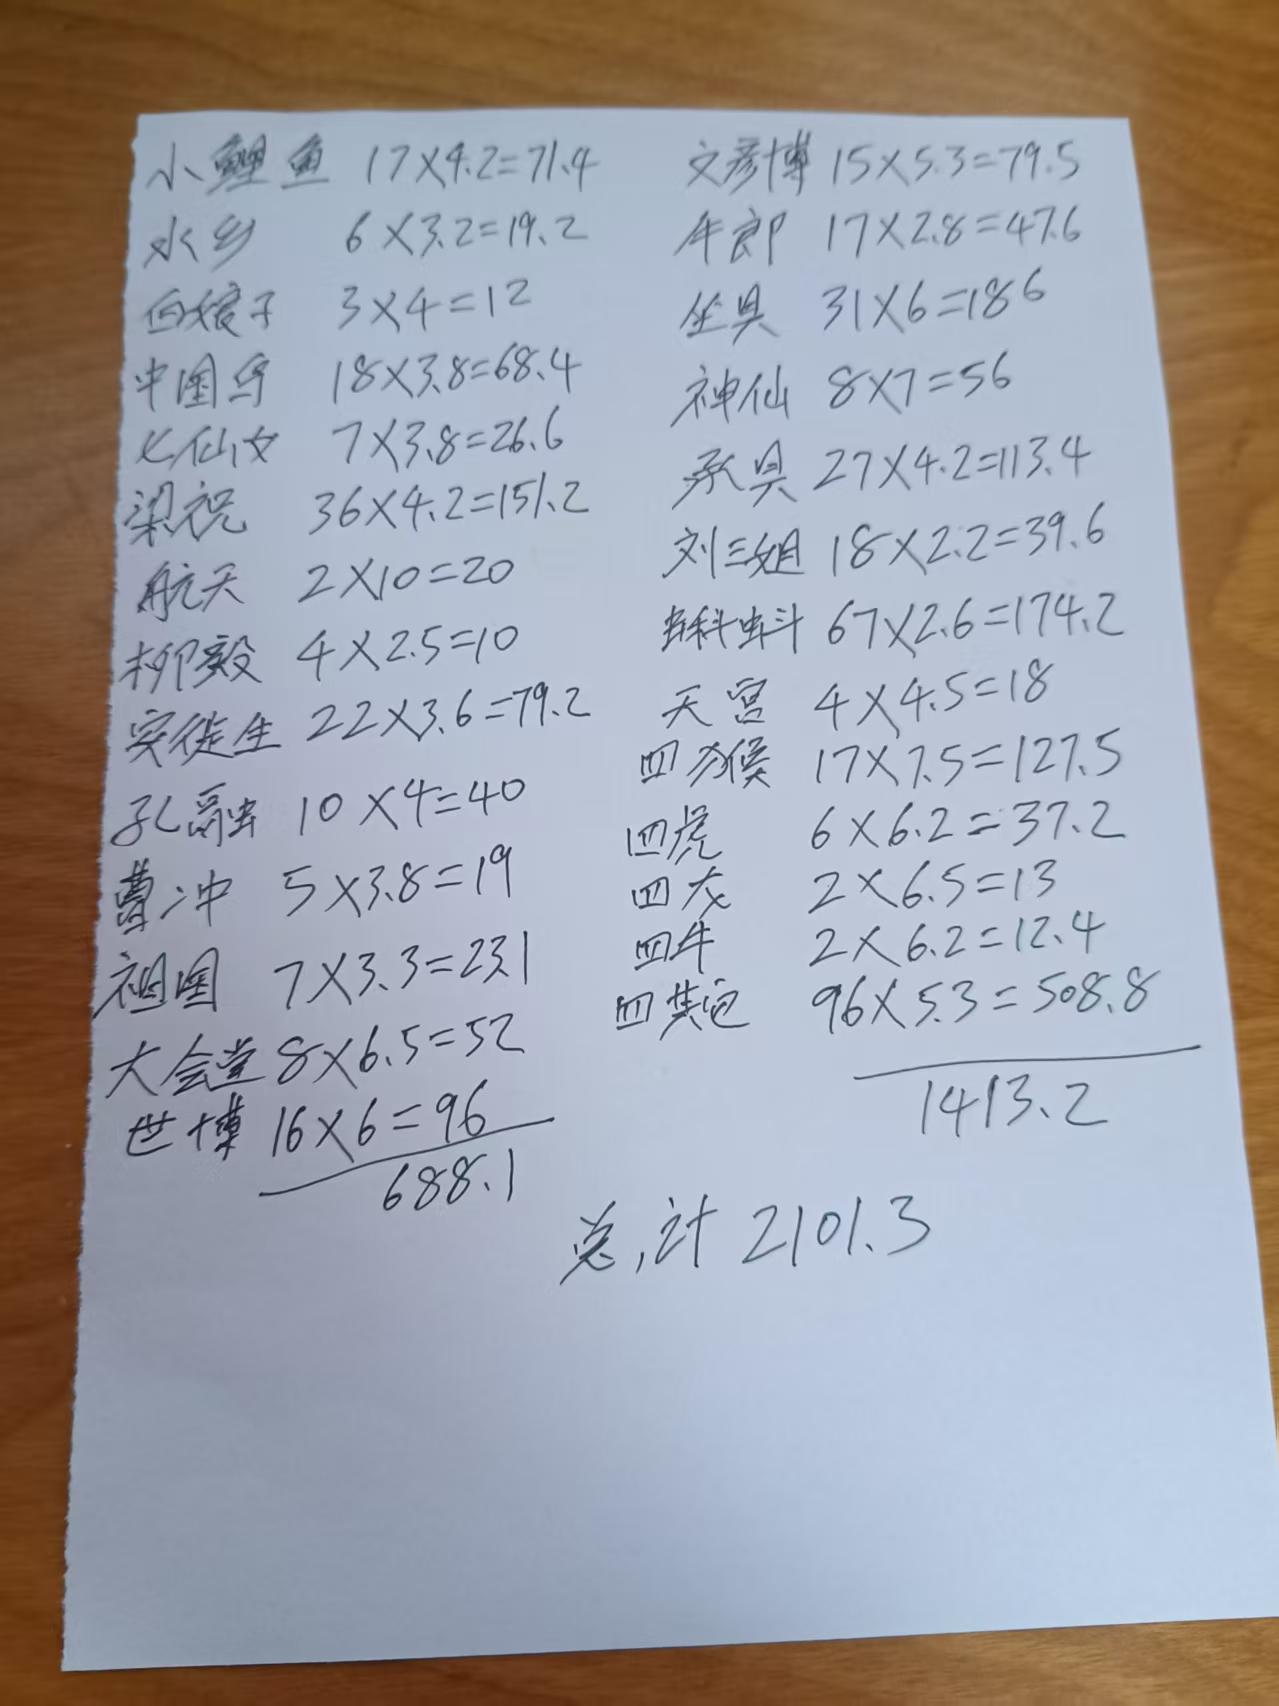 小鲤鱼 17×4.2=71.4
水乡 6×3.2=19.2
白娘子 3×4=12
中国鸟 18×3.8=68.4
七仙女 7×3.8=26.6
梁祝 36×4.2=151.2
航天 2×10=20
柳毅 4×2.5=10
安徒生 22×3.6=79.2
孔融 10×4=40
曹冲 5×3.8=19
祖国 7×3.3=23.1
大会堂 8×6.5=52
世博 16×6=96
688.1
文彦博 15×5.3=79.5
牛郎 17×2.8=47.6
坐具 31×6=186
神仙 8×7=56
承具 27×4.2=113.4
刘三姐 18×2.2=39.6
蝌蚪 67×2.6=174.2
天宫 4×4.5=18
四猴 17×7.5=127.5
四虎 6×6.2=37.2
四龙 2×6.5=13
四牛 2×6.2=12.4
四 96×5.3=508.8
1413.2
总计 2101.3